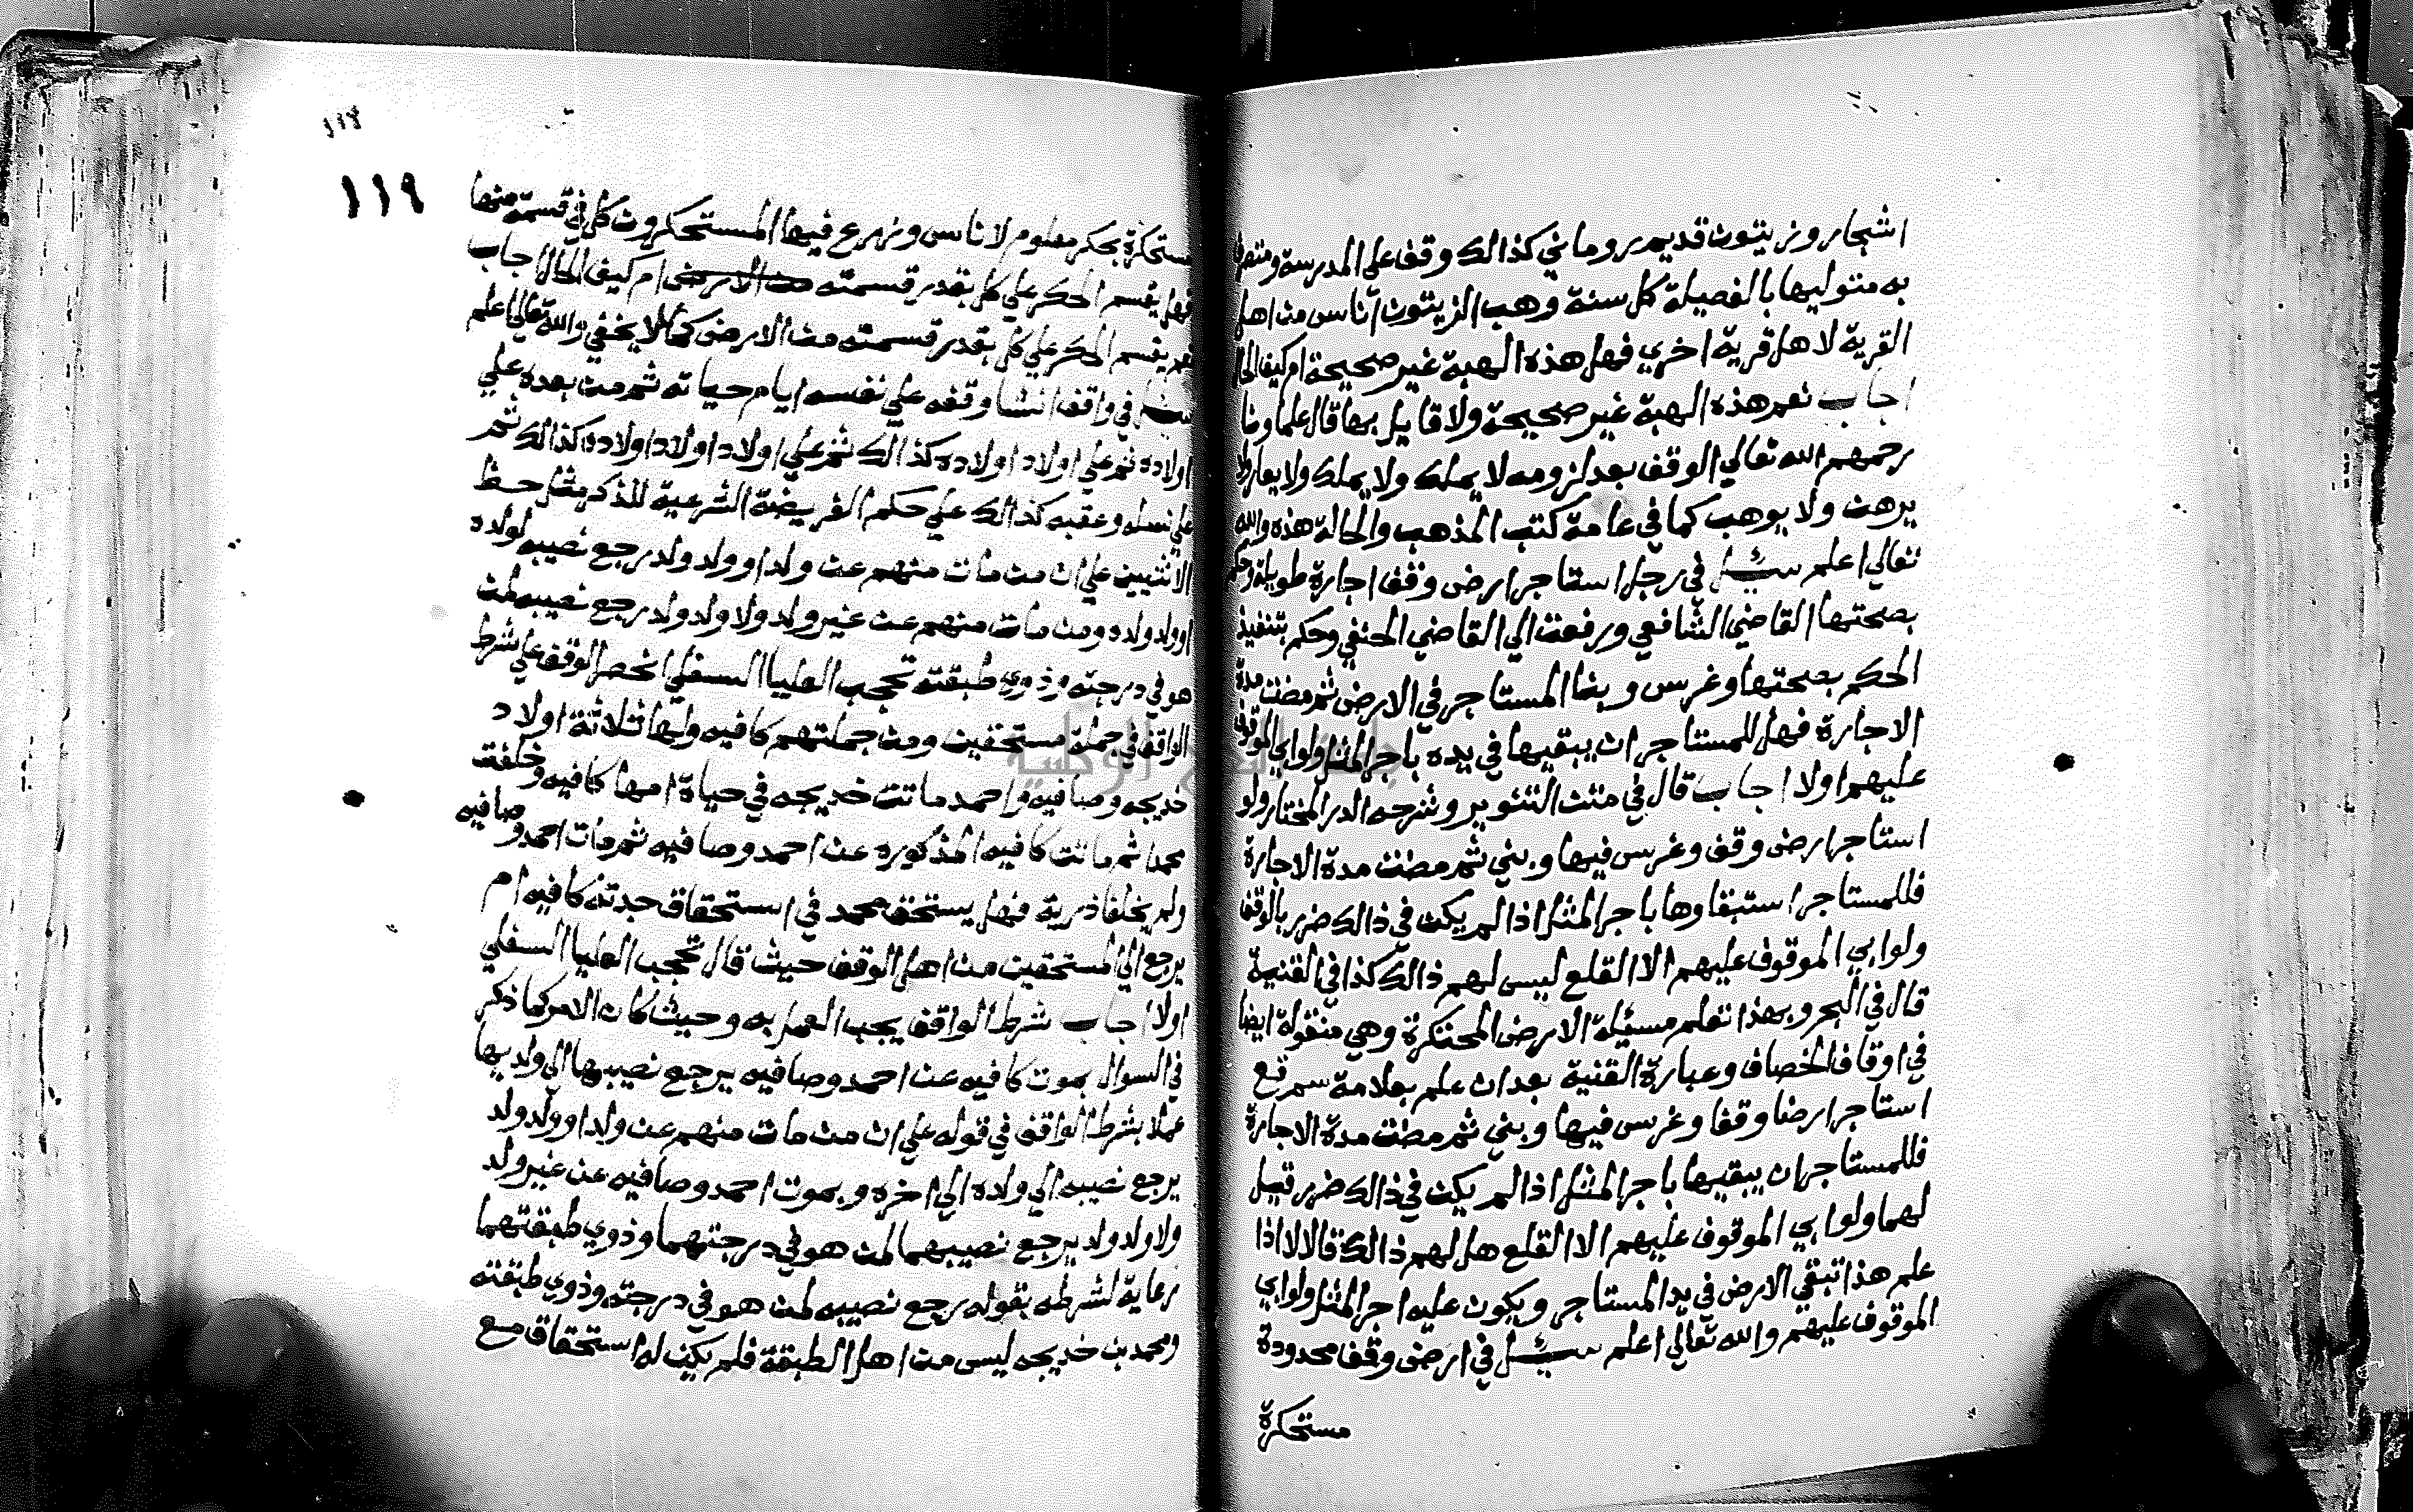 اشجار وزيتون قديم روماني كذالك وقف علي المدرسة ومتصرف
به متوليها بالفصيلة كل سنة وهب الزيتون اناس من اهل
القرية لاهل قرية اخري فهل هذه الهبة غير صحيحة ام كيف الحال
اجاب نعم هذه الهبة غير صحيحة ولا قايل بها قال علماونا
رحمهم الله تعالي الوقف بعد لزومه لا يملك ولا يملك ولا يعار ولا
يرهن ولا يوهب كما في عامة كتب المذهب والحالة هذه والله
تعالي اعلم سئل في رجل استاجر ارض وقف اجارة طويلة وحكم
بصحتها القاضي الشافعي ورفعت الي القاضي الحنفي وحكم بتنفيذ
الحكم بصحتها وغرس وبنا المستاجر في الارض ثم مضت مدة
الاجارة فهل للمستاجر ان يبقيها في يده باجر المثل ولو ابي الموقوف
عليهم اولا اجاب قال في متن التنوير وشرحه الدر المختار ولو
استاجر ارض وقف وغرس فيها وبني ثم مضت مدة الاجارة
فللمستاجر استبقاوها باجر المثل اذا لم يكن في ذالك ضرر بالوقف
ولو ابي الموقوف عليهم الا القلع ليس لهم ذالك كذا في القنية
قال في البحر وبهذا تعلم مسئلة الارض المحتكرة وهي منقولة ايضا
في اوقاف الخصاف وعبارة القنية بعد ان علم بعلامة سم قع
استاجر ارضا وقفا وغرس فيها وبني ثم مضت مدة الاجارة
فللمستاجر ان يبقيها باجر المثل اذا لم يكن في ذالك ضرر قيل
لهما ولو ابي الموقوف عليهم الا القلع هل لهم ذالك قالا لا اذا
علم هذا تبقي الارض في يد المستاجر ويكون عليه اجر المثل ولو ابي
الموقوف عليهم والله تعالي اعلم سئل في ارض وقف محدودة
مستحكرة
١١٩
١١٩
مستحكرة بحكر معلوم لاناس وزرع فيها المستحكرون كل في قسمة منها
فهل يقسم الحكر علي كل بقدر قسمته من الارض ام كيف الحال اجاب
نعم يقسم الحكر علي كل بقدر قسمته من الارض كما لا يخفي والله تعالي اعلم
سئل في واقف انشا وقفه علي نفسه ايام حياته ثم من بعده علي
اولاده ثم علي اولاد اولاده كذالك ثم علي اولاد اولاد اولاده كذالك ثم
علي نسله وعقبه كذالك علي حكم الفريضة الشرعية للذكر مثل حظ
الانثيين علي ان من مات منهم عن ولد او ولد ولد رجع نصيبه لولده
او ولد ولده ومن مات منهم عن غير ولد ولا ولد ولد رجع نصيبه لمن
هو في درجته وذوي طبقته تحجب العليا السفلي انحصر الوقف علي شرط
الواقف في جملة مستحقين ومن جملتهم كافيه ولها ثلاثة اولاد
خديجه وصافيه واحمد ماتت خديجه في حياة امها كافيه وخلفت
محمدا ثم ماتت كافيه المذكوره عن احمد وصافيه ثم مات احمد وصافيه
ولم يخلفا ذرية فهل يستحق محمد في استحقاق جدته كافيه ام
يرجع الي المستحقين من اهل الوقف حيث قال تحجب العليا السفلي
اولا اجاب شرط الواقف يجب العمل به وحيث كان الامر كما ذكر
في السوال بموت كافيه عن احمد وصافيه يرجع نصيبها الي ولديها
عملا بشرط الواقف في قوله علي ان من مات منهم عن ولد او ولد ولد
يرجع نصيبه الي ولاده الي اخره وبموت احمد وصافيه عن غير ولد
ولا ولد ولد يرجع نصيبهما لمن هو في درجتهما وذوي طبقتهما
رعاية لشرطه بقوله رجع نصيبه لمن هو في درجته وذوي طبقته
ومحمد بن خديجه ليس من اهل الطبقة فلم يكن له استحقاق مع